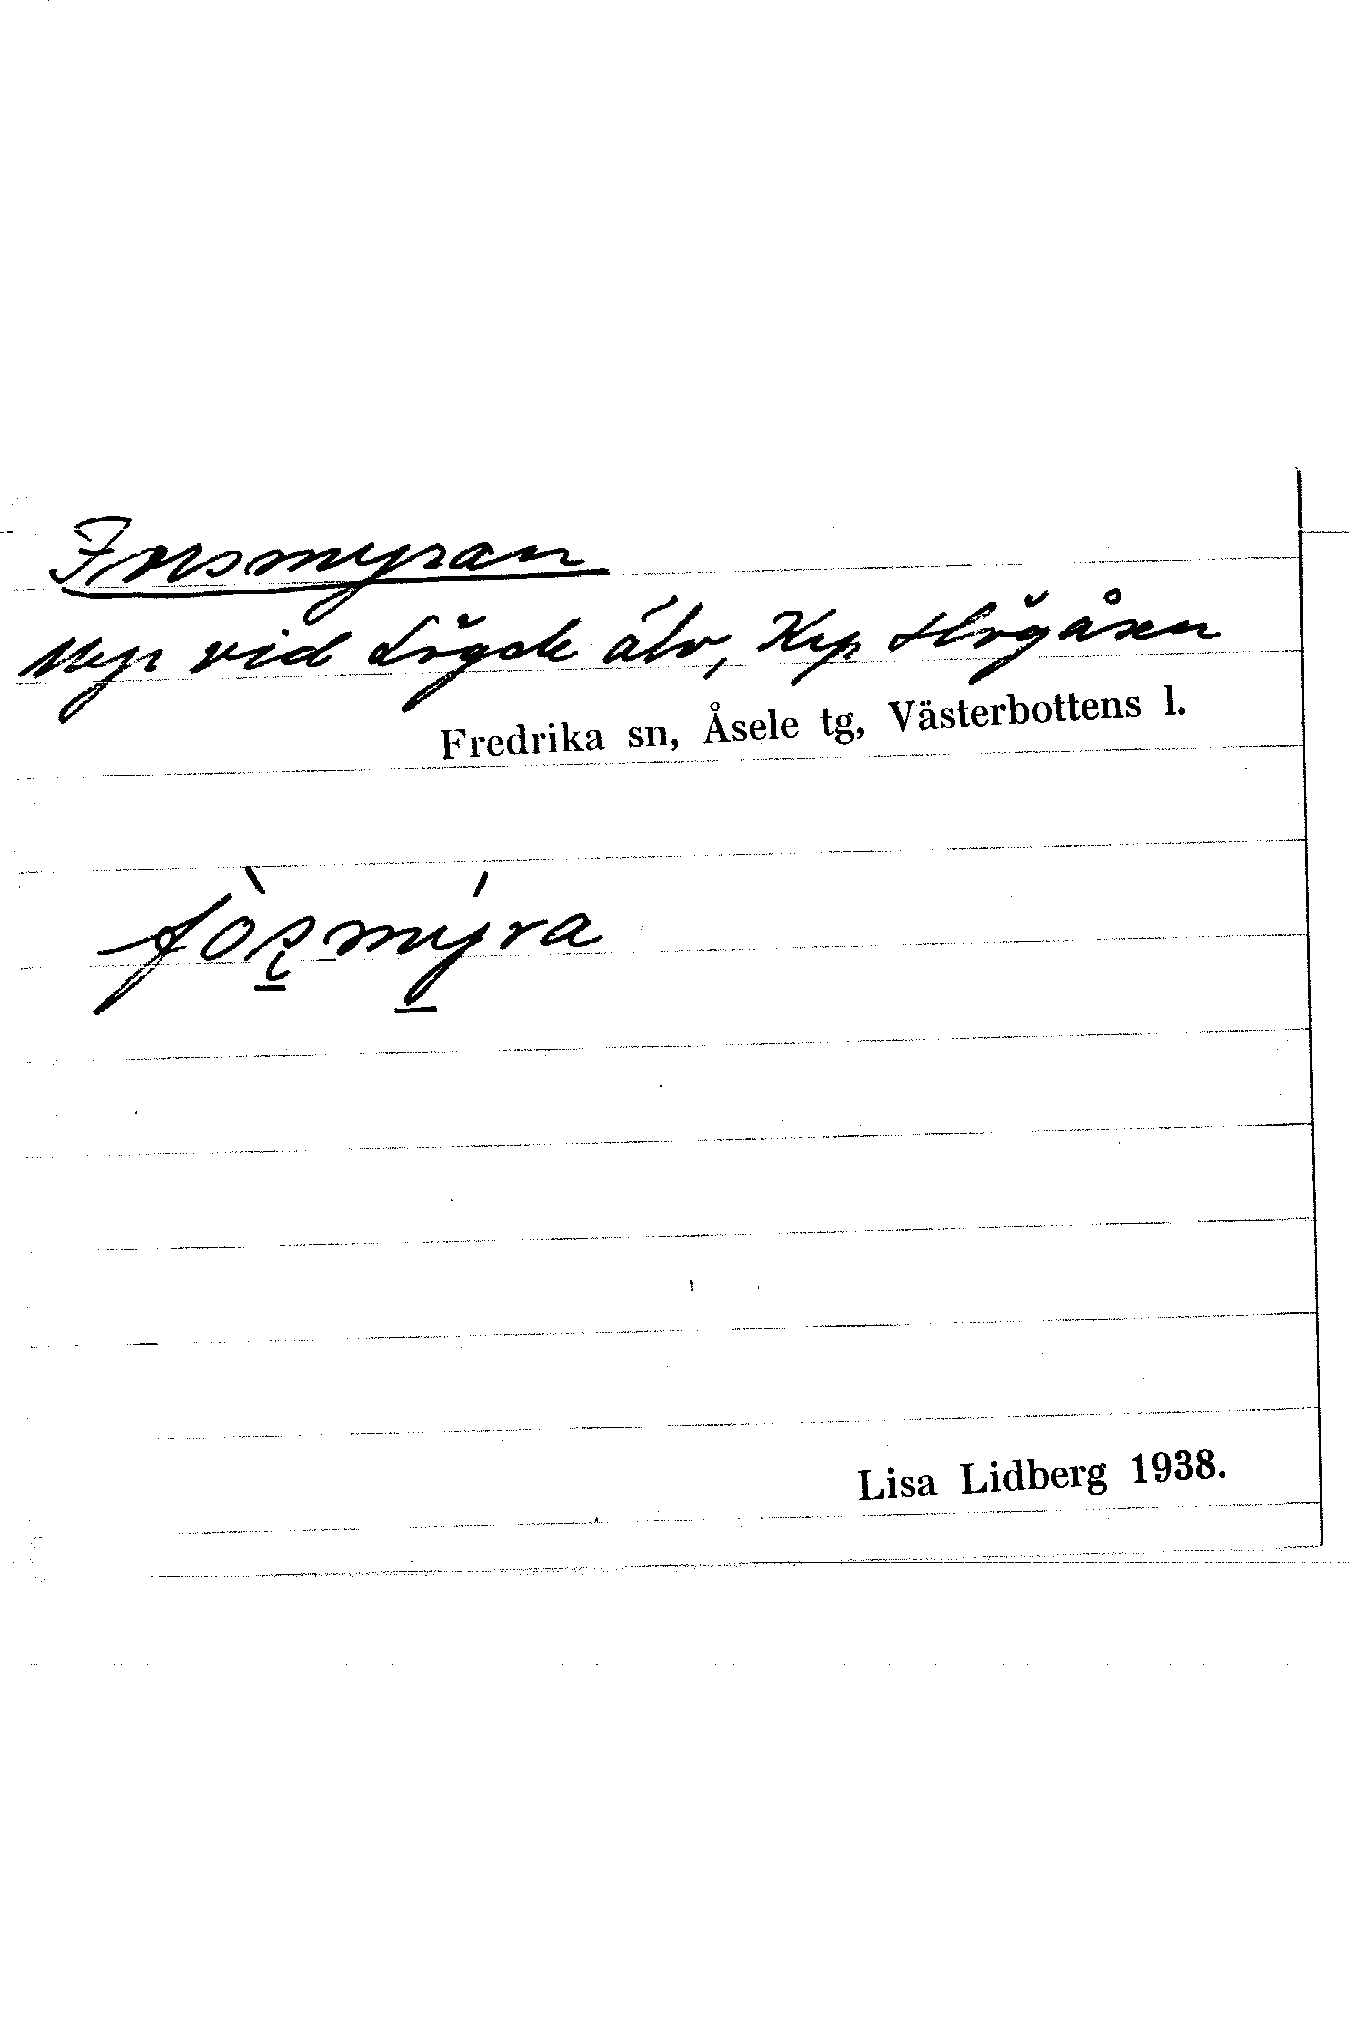 Forsmyran
Myr vid Lögde älv, Krp Högåsen
Fredrika sn, Åsele tg, Västerbottens l.
fòʀmýra
Lisa Lidberg 1938.